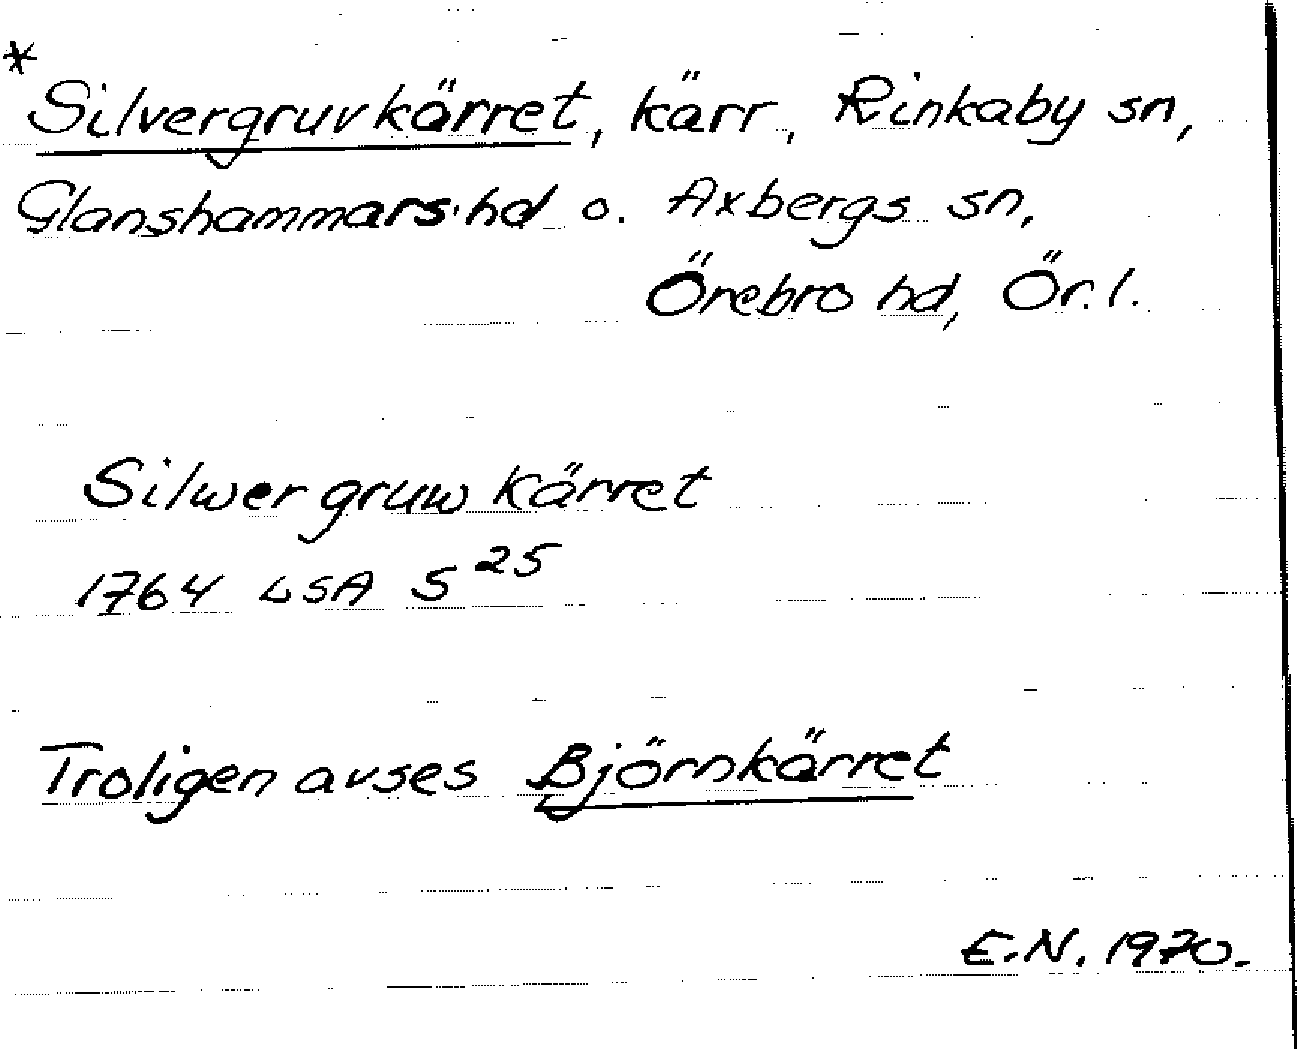 * Silvergruvkärret, kärr, Rinkaby sn,
Glanshammars hd o. Axbergs sn,
Örebro hd, Ör. l.
Silwergruw kärret
1764 LSA S 25
Troligen avses Björnkärret
E.N. 1970.